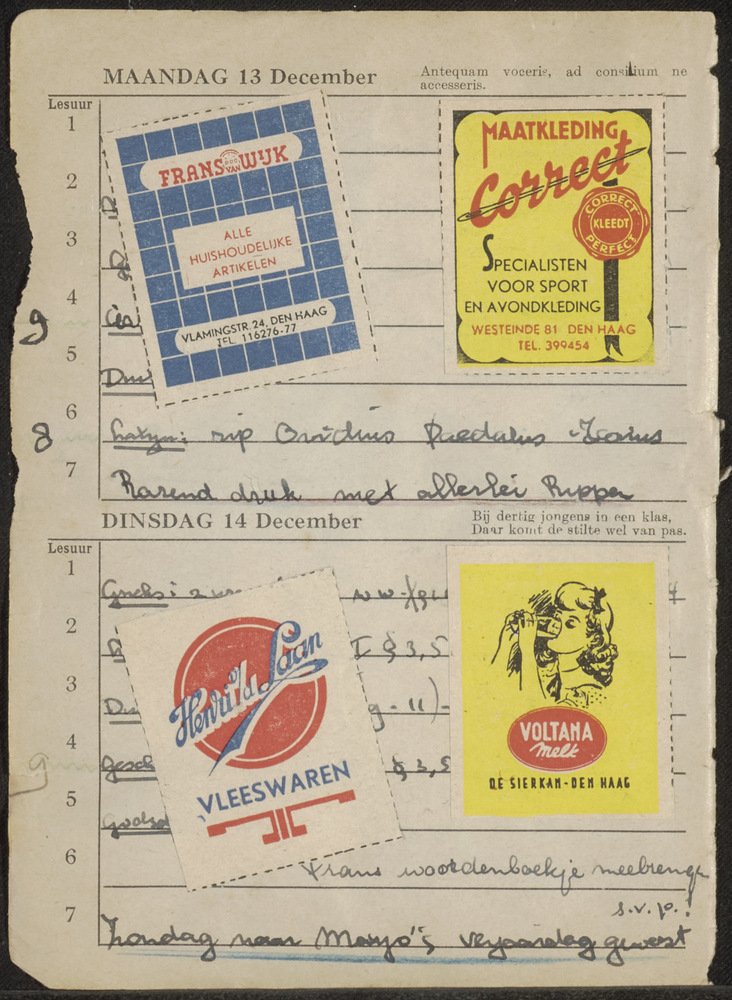 MAANDAG 13 December
Antequam voceris, ad consilium ne
accesseris.
Lesuur
1
2
3
4
5
6
7
FRANS VAN WIJK
ALLE
HUISHOUDELIJKE
ARTIKELEN
VLAMINGSTR. 24, DEN HAAG
TEL. 116276-77
MAATKLEDING
Correct
CORRECT
KLEEDT
PERFECT
SPECIALISTEN
VOOR SPORT
EN AVONDKLEDING
WESTEINDE 81 DEN HAAG
TEL. 399454
9
8
Latijn: rip Ovidius Daedalus-Icarus
Razend druk met allerlei
DINSDAG 14 December
Bij dertig jongens in een klas,
Daar komt de stilte wel van pas.
Lesuur
1
2
3
4
5
6
7
Grieks: 2
I § 3,5
g-11)-
Gesch
§ 3,5
Godsd
9
Henri v/d Laan
VLEESWAREN
VOLTANA
Melk
DE SIERKAN-DEN HAAG
Frans woordenboekje meebrengen
s.v.p.!
Zondag naar Marjo's verjaardag geweest